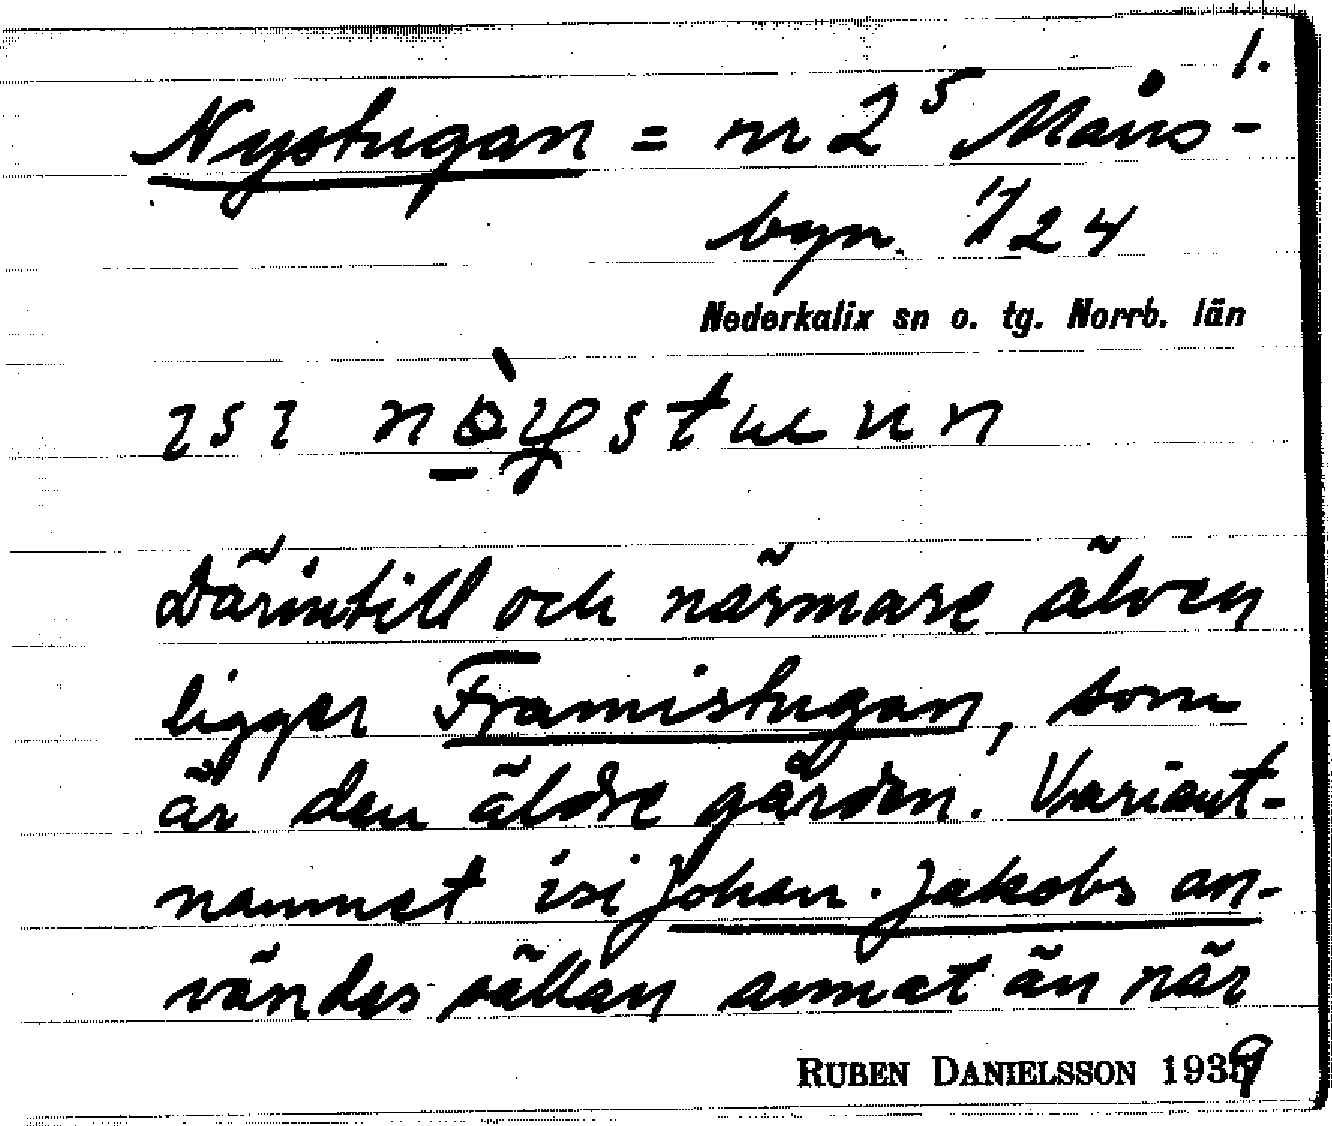 1.
Nystugan = nr 2⁵ Måns-
byn. 1/7 24
Nederkalix sn o. tg. Norrb. län
Därintill och närmare älven
ligger Framistugan, som
är den äldre gården. Variant-
namnet isi Johan-Jakobs an-
vändes sällan annat än när
RUBEN DANIELSSON 1939